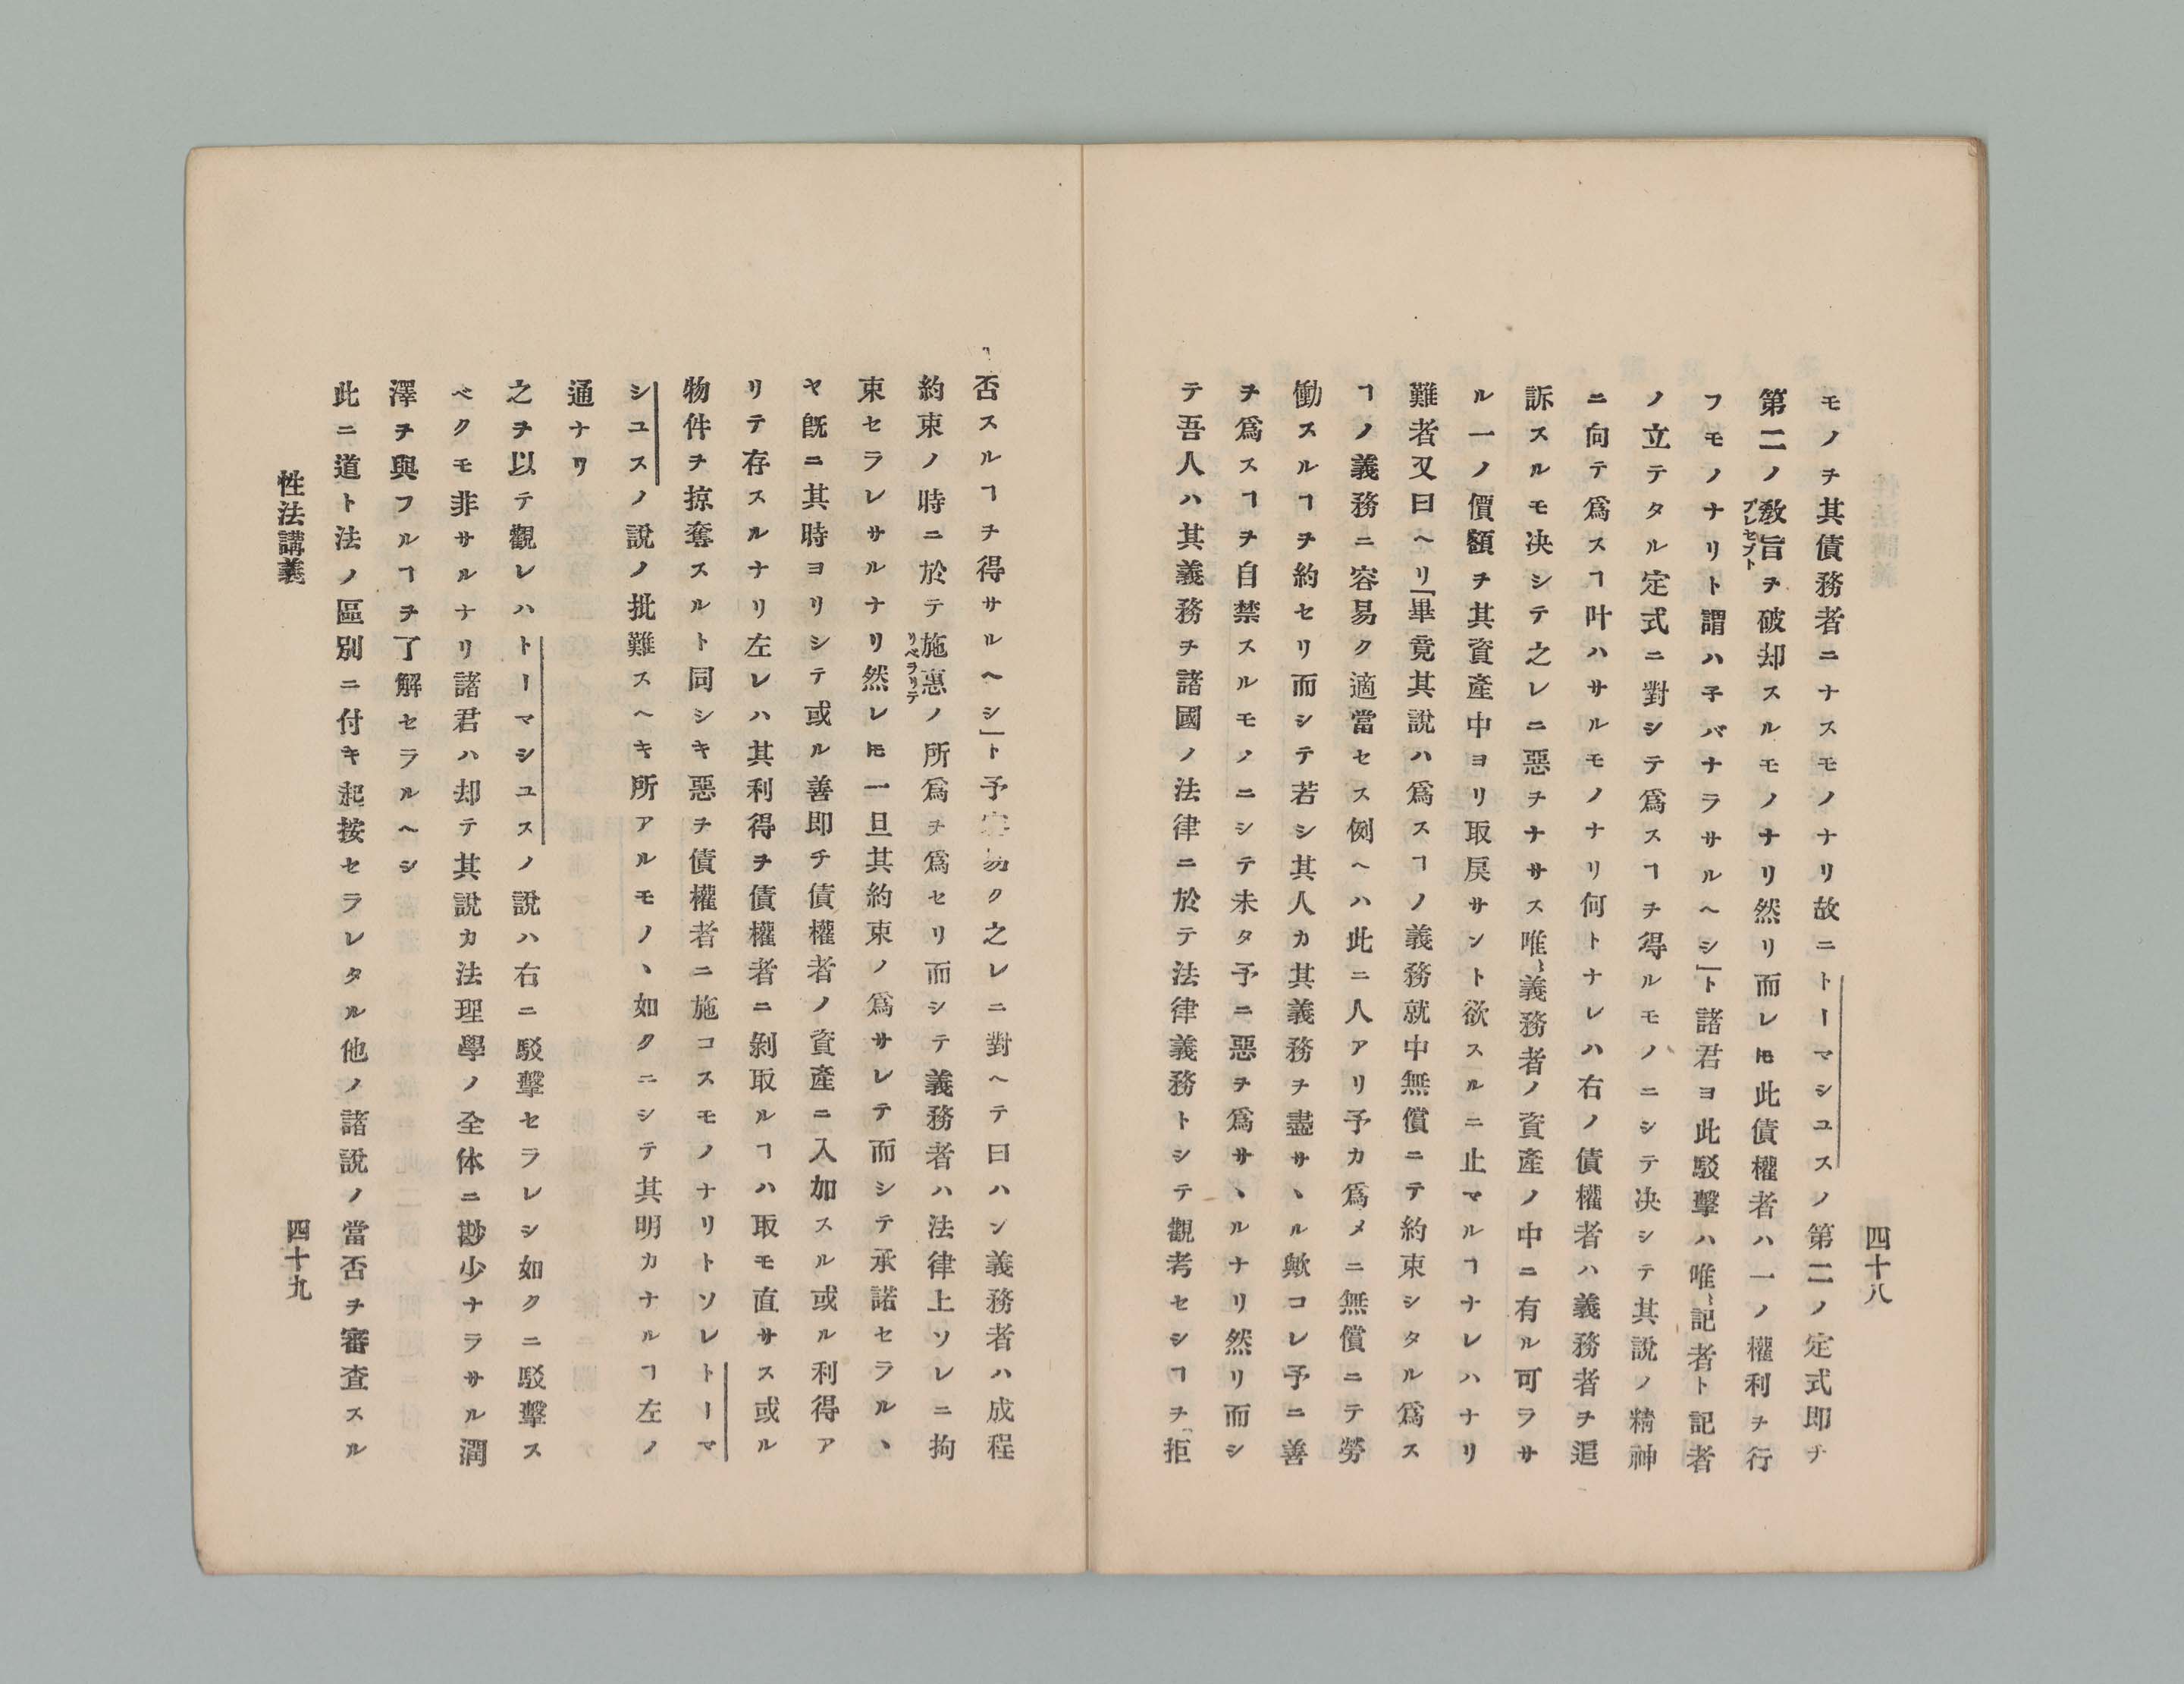 四十八
モノヲ其債務者ニナスモノナリ故ニトーマシユスノ第二ノ定式即チ
第二ノ敎旨ヲ破却スルモノナリ然リ而レ𪜈此債權者ハ一ノ權利ヲ行
プレセプト
フモノナリト謂ハ子バナラサルヘシ」ト諸君ヨ此駁擊ハ唯〻記者ト記者
ノ立テタル定式ニ對シテ爲スヿヲ得ルモノニシテ决シテ其說ノ精神
ニ向テ爲スヿ叶ハサルモノナリ何トナレハ右ノ債權者ハ義務者ヲ追
訴スルモ决シテ之レニ惡ヲナサス唯〻義務者ノ資產ノ中ニ有ル可ラサ
ル一ノ價額ヲ其資產中ヨリ取戾サント欲スルニ止マルヿナレハナリ
難者又曰ヘリ「畢竟其說ハ爲スヿノ義務就中無償ニテ約束シタル爲ス
ヿノ義務ニ容易ク適當セス例ヘハ此ニ人アリ予カ爲メニ無償ニテ勞
働スルヿヲ約セリ而シテ若シ其人カ其義務ヲ盡サヽル歟コレ予ニ善
ヲ爲スヿヲ自禁スルモノニシテ未タ予ニ惡ヲ爲サヽルナリ然リ而シ
テ吾人ハ其義務ヲ諸國ノ法律ニ於テ法律義務トシテ觀考セシヿヲ拒
否スルヿヲ得サルヘシ」ト予容易ク之レニ對ヘテ曰ハン義務者ハ成程
約束ノ時ニ於テ施惠ノ所爲ヲ爲セリ而シテ義務者ハ法律上ソレニ拘
リベラリテ
束セラレサルナリ然レ𪜈一旦其約束ノ爲サレテ而シテ承諾セラルヽ
ヤ旣ニ其時ヨリシテ或ル善即チ債權者ノ資產ニ入加スル或ル利得ア
リテ存スルナリ左レハ其利得ヲ債權者ニ剝取ルヿハ取モ直サス或ル
物件ヲ掠奪スルト同シキ惡ヲ債權者ニ施コスモノナリトソレトーマ
シユスノ說ノ批難スヘキ所アルモノヽ如クニシテ其明カナルヿ左ノ
通ナリ
之ヲ以テ觀レハトーマシユスノ說ハ右ニ駁擊セラレシ如クニ駁擊ス
ベクモ非サルナリ諸君ハ却テ其說カ法理學ノ全体ニ尠少ナラサル潤
澤ヲ與フルヿヲ了解セラルヘシ
此ニ道ト法ノ區別ニ付キ起按セラレタル他ノ諸說ノ當否ヲ審査スル
性法講義
四十九